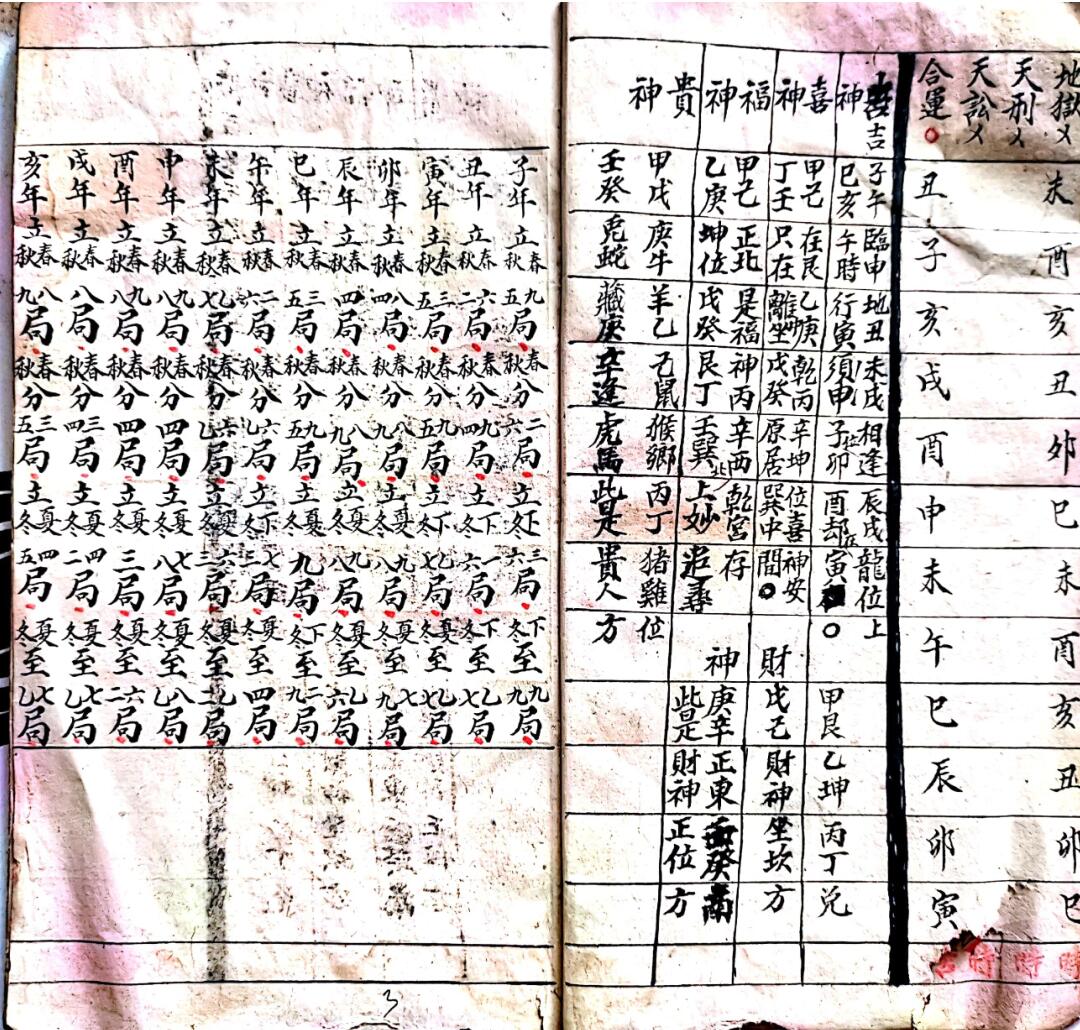 地獄乂
未酉亥丑卯巳未酉亥丑卯巳時
天刑乂
時
天訟乂
時
合運〇
丑子亥戌酉申未午巳辰卯寅吉
吉神
子午臨申地丑未戌相逢辰戌龍位上
巳亥午時行寅須申子在卯酉却在寅〇
喜神
甲己在艮乙庚乾丙辛坤位喜神安
丁壬只在離坐戊癸原居巽中間〇
福神
甲己正北是福神丙辛西北乾宮存
乙庚坤位戊癸艮丁壬巽上妙追尋
貴神
甲戊庚牛羊乙己鼠猴鄉丙丁猪雞位
壬癸兎蛇藏庚辛逢虎馬此是貴人方
財神
甲艮乙坤丙丁兌
戊己財神坐坎方
庚辛正東壬癸南
此是財神正位方
子年立春秋九五局春秋分二六局立下冬三六局下冬至九九局
丑年立春秋六二局春秋分四九局立下冬一六局下冬至乙七局
寅年立春秋三五局春秋分九五局立下冬九一局夏冬至乙七局
卯年立春秋八四局春秋分八九局立夏冬九八局夏冬至七九局
辰年立春秋四局春秋分八九局立夏冬局夏冬至乙六局
巳年立春秋三五局春秋分九五局立下冬九局下冬至二九局
午年立春秋二六局春秋分六乙局立夏冬七三局夏冬至四局
未年立春秋乙七局春秋分六乙局立夏冬六三局夏冬至乙二局
申年立春秋九八局春秋分四局立夏冬七八局夏冬至八乙局
酉年立春秋九八局春秋分四局立夏冬三局夏冬至六二局
戌年立春秋八局春秋分三四局立夏冬四二局夏冬至七乙局
亥年立春秋八九局春秋分三五局立夏冬四五局夏冬至七乙局
3